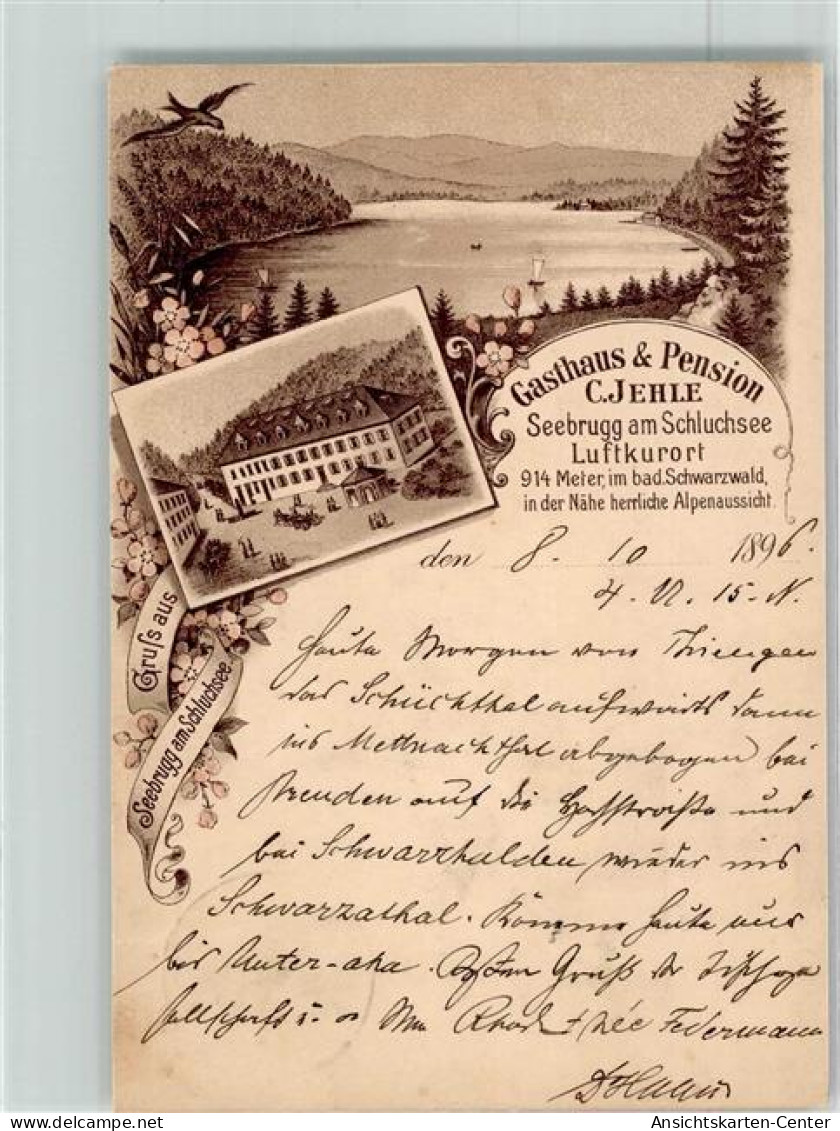 Gasthaus & Pension
C. JEHLE
Seebrugg am Schluchsee
Luftkurort
914 Meter, im bad. Schwarzwald,
in der Nähe herrliche Alpenaussicht.
Gruſs aus
Seebrugg am Schluchsee
den 8. 10 1896.
4. U. 15. N.
Heute Morgen von Thiengen
das Schlüchthal aufwärts dann
ins Mettnachthal abgebogen bei
auf die und
bei Schwarzhalden wieder ins
Schwarzathal. Komme heute nur
bis Unter-aha. Gruß der
Federmann
Ansichtskarten-Center